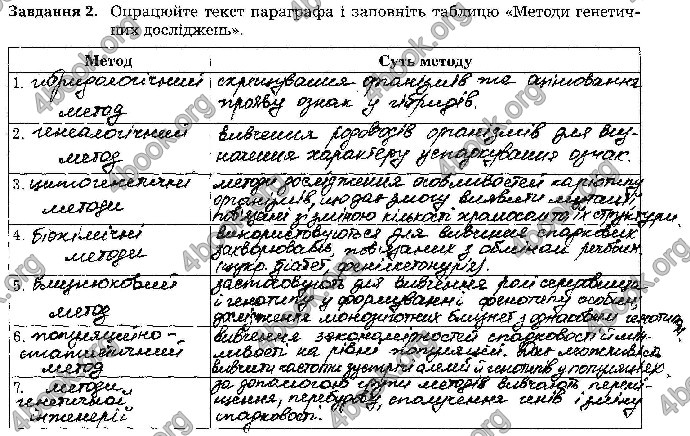 Завдання 2. Опрацюйте текст параграфа і заповніть таблицю «Методи генетич-
них досліджень».
Метод Суть методу
1. гібридологічний схрещування організмів та оцінювання
метод прояву ознак у гібридів.
2. генеалогічний вивчення родоводів організмів для виз-
метод начення характеру успадкування ознак.
3. цитогенетичні методи дослідження особливостей каріотипу
методи організмів, що дає змогу виявити мутації,
пов'язані зі зміною кількості хромосом та їх структури
4. біохімічні використовуються для вивчення спадкових
методи захворювань, пов'язаних з обміном речовин
(цукр. діабет, фенілкетонурія).
5. близнюковий застосовують для вивчення ролі середовища
метод і генотипу у формуванні фенотипу особин,
дослідження монозиготних близнят з однаковим генотипом
6. популяційно- вивчення закономірностей спадковості і мін-
статистичний ливості на рівні популяцій. Дає можливість
метод вивчити частоти зустрічі алелей й генотипів у популяціях
7. методи за допомогою групи методів вивчають перемі-
генетичної щення, перебудову, сполучення генів і зміну
інженерії спадковості.
4book.org